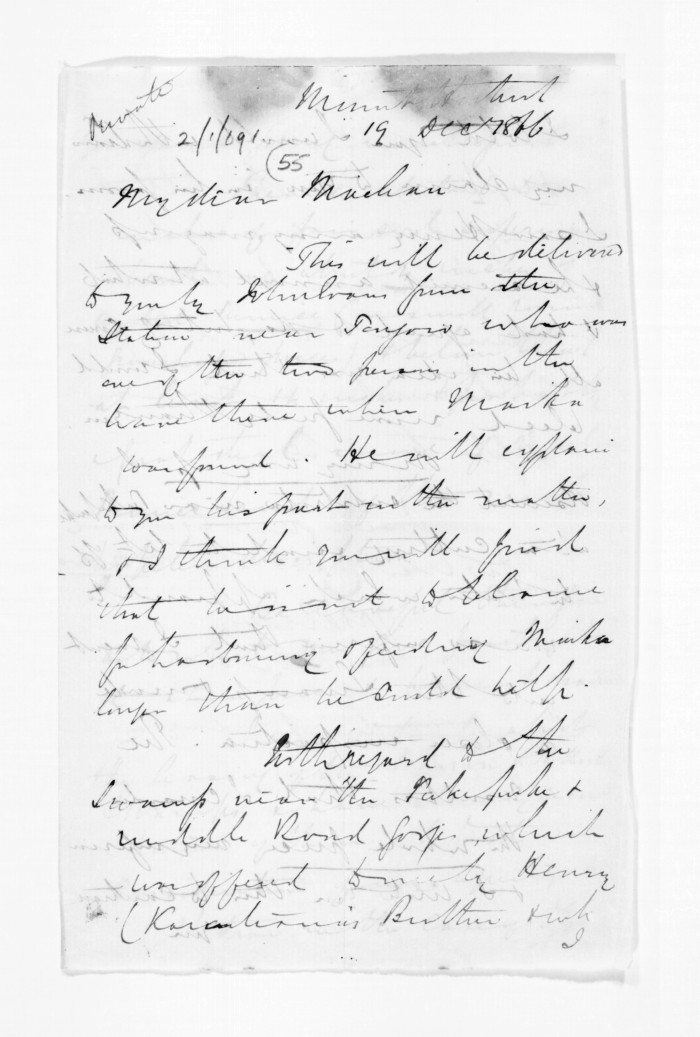 Private
Mount
2/1/091
19 Dec 1866
55
My dear Maclean
This will be delivered
to you by John Evans from the
Station near who was
one of the two persons in the
there when Maika
was found. He will explain
to you his part in the matter,
& I think you will find
that he is not to blame
for harbouring or feeding Maika
longer than he could help.
With regard to the
Swamp near the Pakipaki &
middle Road which
was offered to me by Henry
(Karaitiana's Brother &
I